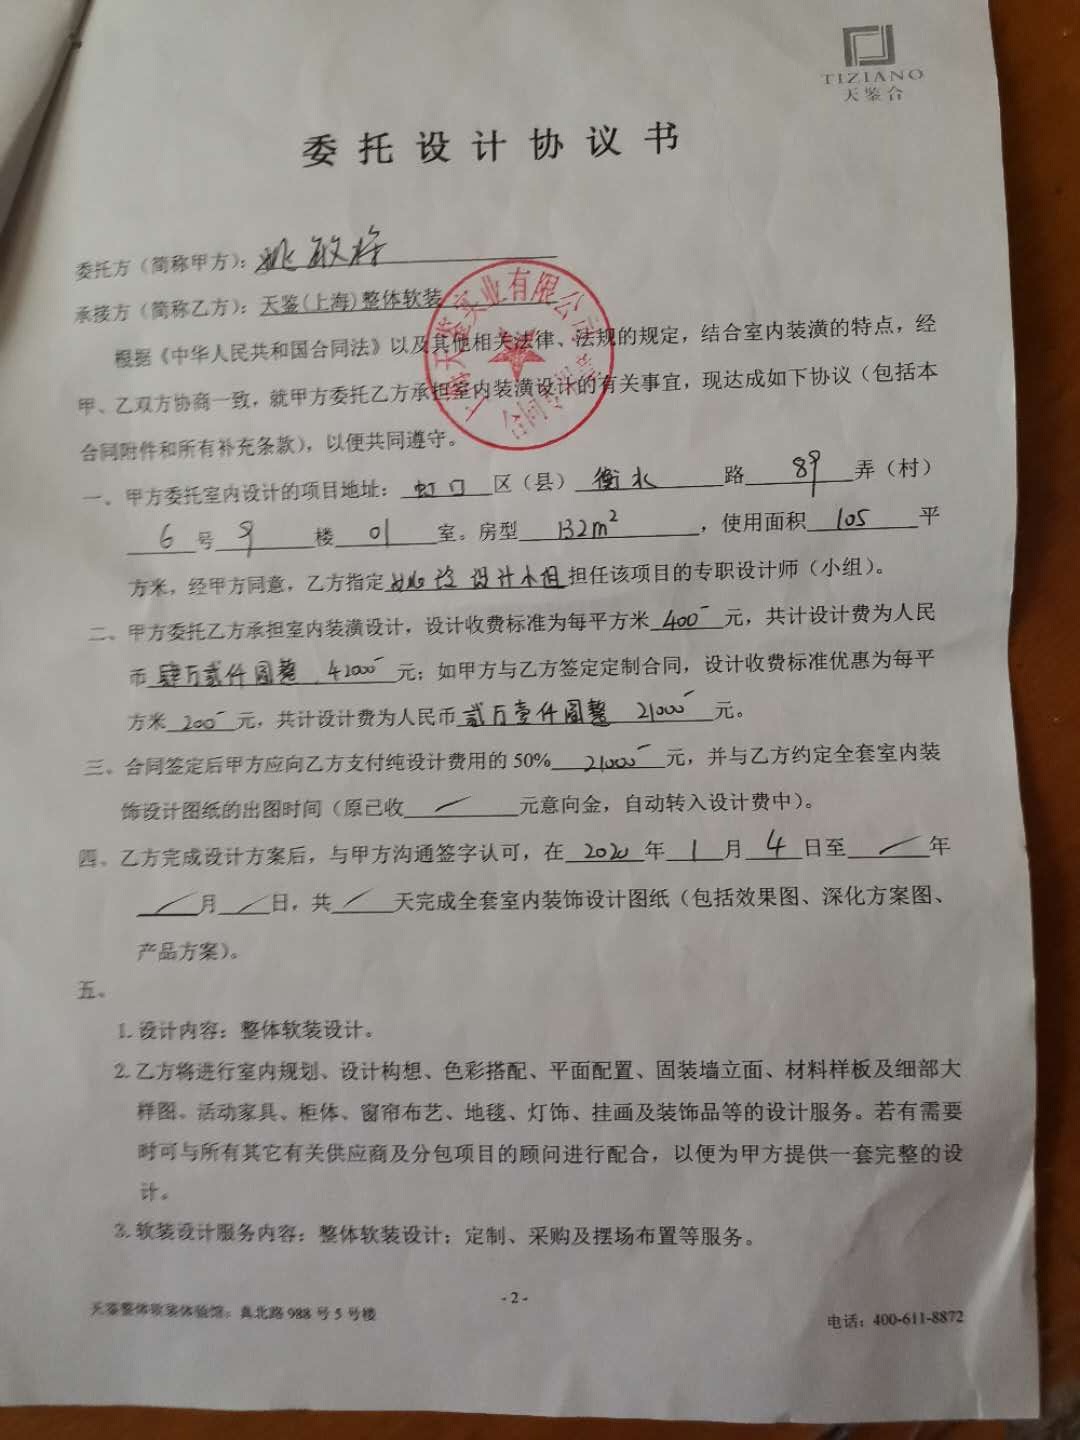 TIZIANO
天鉴合
委托设计协议书
委托方（简称甲方）：姚敏
承接方（简称乙方）：天鉴(上海)整体软装
根据《中华人民共和国合同法》以及其他相关法律、法规的规定，结合室内装潢的特点，经
甲、乙双方协商一致，就甲方委托乙方承担室内装潢设计的有关事宜，现达成如下协议（包括本
合同附件和所有补充条款），以便共同遵守。
一、甲方委托室内设计的项目地址：虹口区（县）衡水路89弄（村）
6号9楼01室。房型132m²，使用面积105平
方米，经甲方同意，乙方指定设计小组担任该项目的专职设计师（小组）。
二、甲方委托乙方承担室内装潢设计，设计收费标准为每平方米400元，共计设计费为人民
币肆万贰仟圆整 42000元；如甲方与乙方签定定制合同，设计收费标准优惠为每平
方米200元，共计设计费为人民币贰万壹仟圆整 21000元。
三、合同签定后甲方应向乙方支付纯设计费用的50% 21000元，并与乙方约定全套室内装
饰设计图纸的出图时间（原已收／元意向金，自动转入设计费中）。
四、乙方完成设计方案后，与甲方沟通签字认可，在2020年1月4日至／年
／月／日，共／天完成全套室内装饰设计图纸（包括效果图、深化方案图、
产品方案）。
五、
1. 设计内容：整体软装设计。
2. 乙方将进行室内规划、设计构想、色彩搭配、平面配置、固装墙立面、材料样板及细部大
样图、活动家具、柜体、窗帘布艺、地毯、灯饰、挂画及装饰品等的设计服务。若有需要
时可与所有其它有关供应商及分包项目的顾问进行配合，以便为甲方提供一套完整的设
计。
3. 软装设计服务内容：整体软装设计；定制、采购及摆场布置等服务。
- 2 -
天鉴整体软装体验馆：真北路988号5号楼
电话：400-611-8872